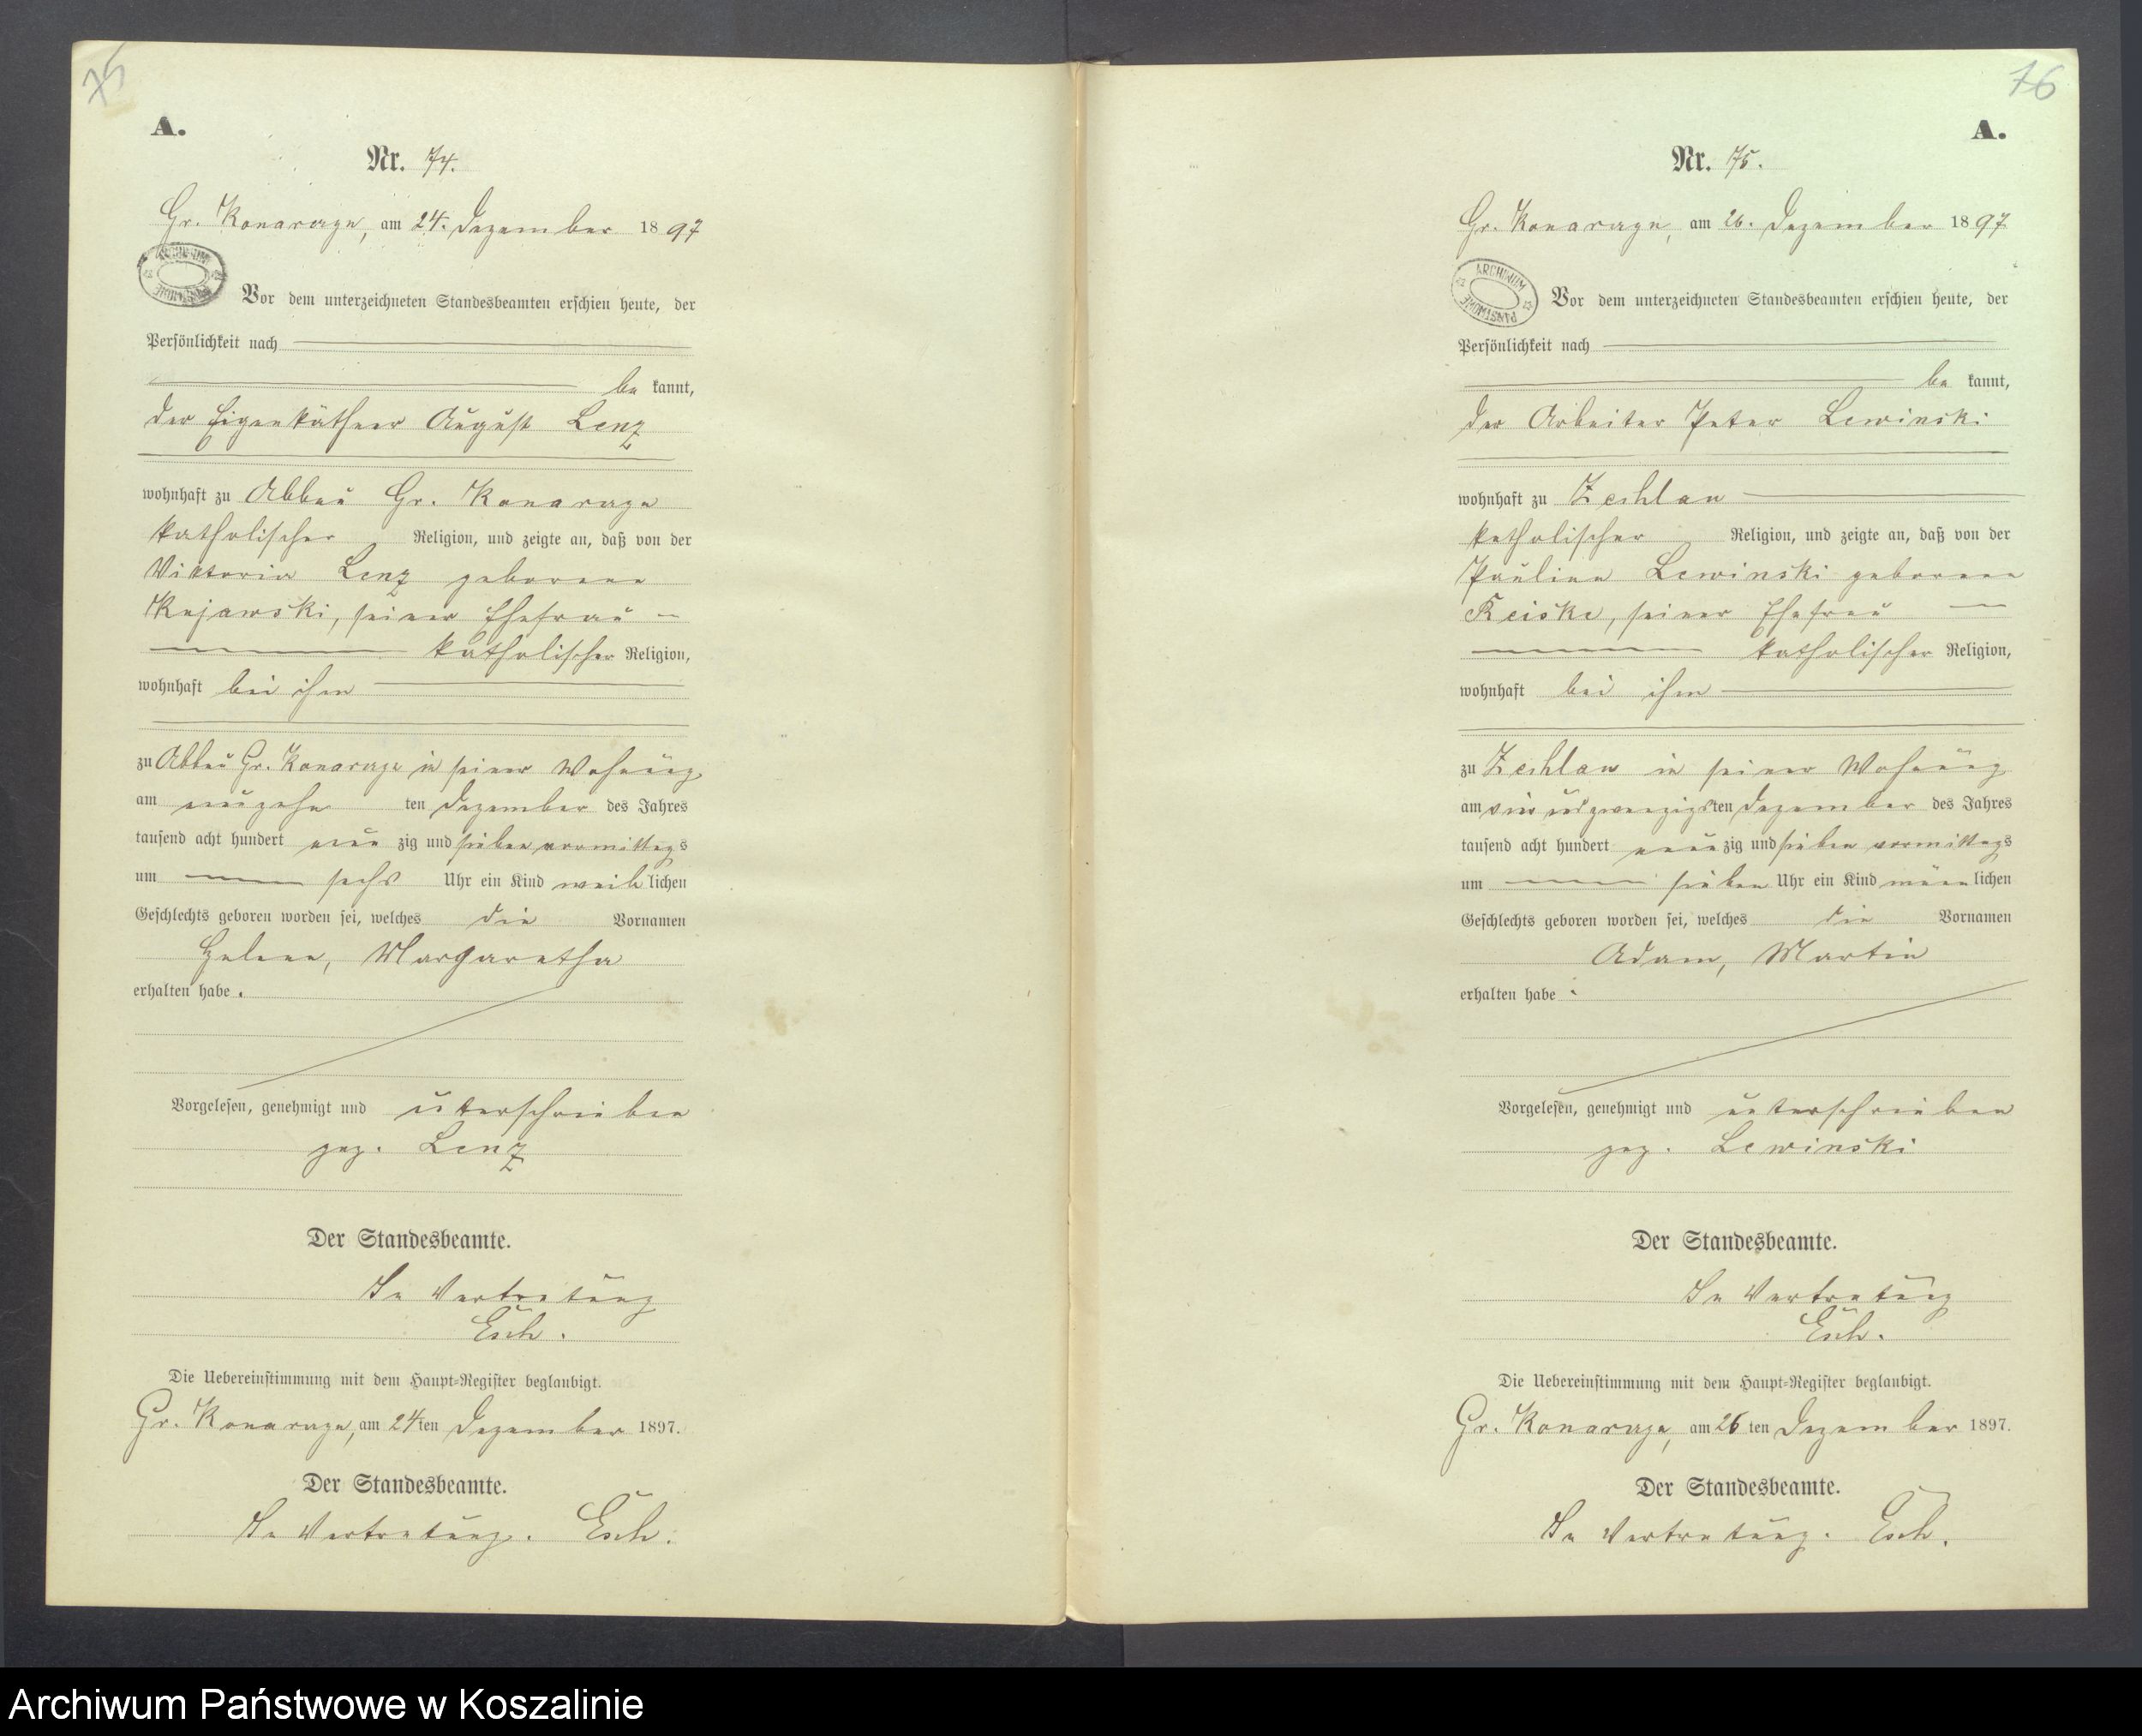 75
A.
Nr. 74.
Gr. Konarczyn, am 24. Dezember 1897
ARCHIWUM PAŃSTWOWE
Vor dem unterzeichneten Standesbeamten erschien heute, der
Persönlichkeit nach
be kannt,
der Eigenkäthner August Lenz
wohnhaft zu Abbau Gr. Konarczyn
katholischer Religion, und zeigte an, daß von der
Viktoria Lenz geborene
Kujawski, seiner Ehefrau
katholischer Religion,
wohnhaft bei ihm
zu Abbau Gr. Konarczyn in seiner Wohnung
am neunzehn ten Dezember des Jahres
tausend acht hundert neun zig und sieben vormittags
um sechs Uhr ein Kind weib lichen
Geschlechts geboren worden sei, welches die Vornamen
Helene, Margaretha
erhalten habe.
Vorgelesen, genehmigt und unterschrieben
gez. Lenz
Der Standesbeamte.
In Vertretung
Esch.
Die Uebereinstimmung mit dem Haupt-Register beglaubigt.
Gr. Konarczyn, am 24ten Dezember 1897.
Der Standesbeamte.
In Vertretung. Esch.
76
A.
Nr. 75.
Gr. Konarczyn, am 26. Dezember 1897
ARCHIWUM PAŃSTWOWE
Vor dem unterzeichneten Standesbeamten erschien heute, der
Persönlichkeit nach
be kannt,
der Arbeiter Peter Lewinski
wohnhaft zu Zechlau
katholischer Religion, und zeigte an, daß von der
Pauline Lewinski geborene
Reiske, seiner Ehefrau
katholischer Religion,
wohnhaft bei ihm
zu Zechlau in seiner Wohnung
am ein und zwanzigsten Dezember des Jahres
tausend acht hundert neun zig und sieben vormittags
um sieben Uhr ein Kind männ lichen
Geschlechts geboren worden sei, welches die Vornamen
Adam, Martin
erhalten habe.
Vorgelesen, genehmigt und unterschrieben
gez. Lewinski
Der Standesbeamte.
In Vertretung
Esch.
Die Uebereinstimmung mit dem Haupt-Register beglaubigt.
Gr. Konarczyn, am 26 ten Dezember 1897.
Der Standesbeamte.
In Vertretung. Esch.
Archiwum Państwowe w Koszalinie